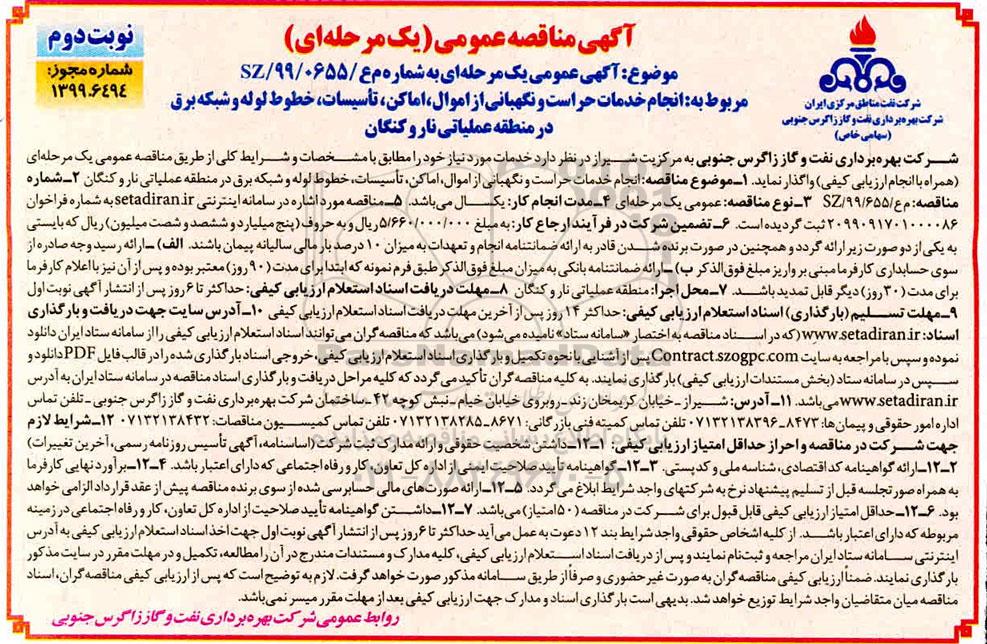 آگهی مناقصه عمومی (یک مرحله‌ای)
نوبت دوم
شماره مجوز:
۱۳۹۹.۶۴۹۴
موضوع: آگهی عمومی یک مرحله‌ای به شماره م ع / ۰۶۵۵ / ۹۹ / SZ
مربوط به: انجام خدمات حراست و نگهبانی از اموال، اماکن، تأسیسات، خطوط لوله و شبکه برق
در منطقه عملیاتی نار و کنگان
شرکت نفت مناطق مرکزی ایران
شرکت بهره برداری نفت و گاز زاگرس جنوبی
(سهامی خاص)
شرکت بهره برداری نفت و گاز زاگرس جنوبی به مرکزیت شیراز در نظر دارد خدمات مورد نیاز خود را مطابق با مشخصات و شرایط کلی از طریق مناقصه عمومی یک مرحله‌ای
(همراه با انجام ارزیابی کیفی) واگذار نماید. ۱ـ موضوع مناقصه: انجام خدمات حراست و نگهبانی از اموال، اماکن، تأسیسات، خطوط لوله و شبکه برق در منطقه عملیاتی نار و کنگان ۲ـ شماره
مناقصه: م ع/۶۵۵/۹۹/SZ ۳ـ نوع مناقصه: عمومی یک مرحله‌ای ۴ـ مدت انجام کار: یکسال می‌باشد. ۵ـ مناقصه مورد اشاره در سامانه اینترنتی setadiran.ir به شماره فراخوان
۲۰۹۹۰۹۱۷۰۱۰۰۰۰۸۶ ثبت گردیده است. ۶ـ تضمین شرکت در فرآیند ارجاع کار: به مبلغ ۵/۶۶۰/۰۰۰/۰۰۰ ریال و به حروف (پنج میلیارد و ششصد و شصت میلیون) ریال که بایستی
به یکی از دو صورت زیر ارائه گردد و همچنین در صورت برنده شدن قادر به ارائه ضمانتنامه انجام و تعهدات به میزان ۱۰ درصد بار مالی سالیانه پیمان باشند. الف) ـ ارائه رسید وجه صادره از
سوی حسابداری کارفرما مبنی بر واریز مبلغ فوق‌الذکر ب) ـ ارائه ضمانتنامه بانکی به میزان مبلغ فوق‌الذکر طبق فرم نمونه که ابتدا برای مدت (۹۰ روز) معتبر بوده و پس از آن نیز با اعلام کارفرما
برای مدت (۳۰ روز) دیگر قابل تمدید باشد. ۷ـ محل اجرا: منطقه عملیاتی نار و کنگان ۸ـ مهلت دریافت اسناد استعلام ارزیابی کیفی: حداکثر تا ۶ روز پس از انتشار آگهی نوبت اول
۹ـ مهلت تسلیم (بارگذاری) اسناد استعلام ارزیابی کیفی: حداکثر ۱۴ روز پس از آخرین مهلت دریافت اسناد استعلام ارزیابی کیفی ۱۰ـ آدرس سایت جهت دریافت و بارگذاری
اسناد: www.setadiran.ir (که در اسناد مناقصه به اختصار «سامانه ستاد» نامیده می‌شود) می‌باشد که مناقصه‌گران می‌توانند اسناد استعلام ارزیابی کیفی را از سامانه ستاد ایران دانلود
نموده و سپس با مراجعه به سایت Contract.szogpc.com پس از آشنایی با نحوه تکمیل و بارگذاری اسناد استعلام ارزیابی کیفی، خروجی اسناد بارگذاری شده را در قالب فایل PDF دانلود و
سپس در سامانه ستاد (بخش مستندات ارزیابی کیفی) بارگذاری نمایند. به کلیه مناقصه‌گران تأکید می‌گردد که کلیه مراحل دریافت و بارگذاری اسناد مناقصه در سامانه ستاد ایران به آدرس
www.setadiran.ir می‌باشد. ۱۱ـ آدرس: شیراز ـ خیابان کریمخان زند ـ روبروی خیابان خیام ـ نبش کوچه ۴۲ ـ ساختمان شرکت بهره برداری نفت و گاز زاگرس جنوبی ـ تلفن تماس
اداره امور حقوقی و پیمان‌ها: ۸۴۷۳ـ۰۷۱۳۲۱۳۸۳۹۶ تلفن تماس کمیته فنی بازرگانی: ۸۶۷۱ـ۰۷۱۳۲۱۳۸۲۸۵ تلفن تماس کمیسیون مناقصات: ۰۷۱۳۲۱۳۸۴۳۲ ۱۲ـ شرایط لازم
جهت شرکت در مناقصه و احراز حداقل امتیاز ارزیابی کیفی: ۱ـ۱۲ـ داشتن شخصیت حقوقی و ارائه مدارک ثبت شرکت (اساسنامه، آگهی تأسیس روزنامه رسمی، آخرین تغییرات)
۲ـ۱۲ـ ارائه گواهینامه کد اقتصادی، شناسه ملی و کد پستی. ۳ـ۱۲ـ گواهینامه تأیید صلاحیت ایمنی از اداره کل تعاون، کار و رفاه اجتماعی که دارای اعتبار باشد. ۴ـ۱۲ـ برآورد نهایی کارفرما
به همراه صورتجلسه قبل از تسلیم پیشنهاد نرخ به شرکتهای واجد شرایط ابلاغ می‌گردد. ۵ـ۱۲ـ ارائه صورت‌های مالی حسابرسی شده از سوی برنده مناقصه پیش از عقد قرارداد الزامی خواهد
بود. ۶ـ۱۲ـ حداقل امتیاز ارزیابی کیفی قابل قبول برای شرکت در مناقصه (۵۰ امتیاز) می‌باشد. ۷ـ۱۲ـ داشتن گواهینامه تأیید صلاحیت از اداره کل تعاون، کار و رفاه اجتماعی در زمینه
مربوطه که دارای اعتبار باشد. از کلیه اشخاص حقوقی واجد شرایط بند ۱۲ دعوت به عمل می‌آید حداکثر تا ۶ روز پس از انتشار آگهی نوبت اول جهت اخذ اسناد استعلام ارزیابی کیفی به آدرس
اینترنتی سامانه ستاد ایران مراجعه و ثبت‌نام نمایند و پس از دریافت اسناد استعلام ارزیابی کیفی، کلیه مدارک و مستندات مندرج در آن را مطالعه، تکمیل و در مهلت مقرر در سایت مذکور
بارگذاری نمایند. ضمناً ارزیابی کیفی مناقصه‌گران به صورت غیرحضوری و صرفاً از طریق سامانه مذکور صورت خواهد گرفت. لازم به توضیح است که پس از ارزیابی کیفی مناقصه‌گران، اسناد
مناقصه میان متقاضیان واجد شرایط توزیع خواهد شد. بدیهی است بارگذاری اسناد و مدارک جهت ارزیابی کیفی بعد از مهلت مقرر میسر نمی‌باشد.
روابط عمومی شرکت بهره برداری نفت و گاز زاگرس جنوبی